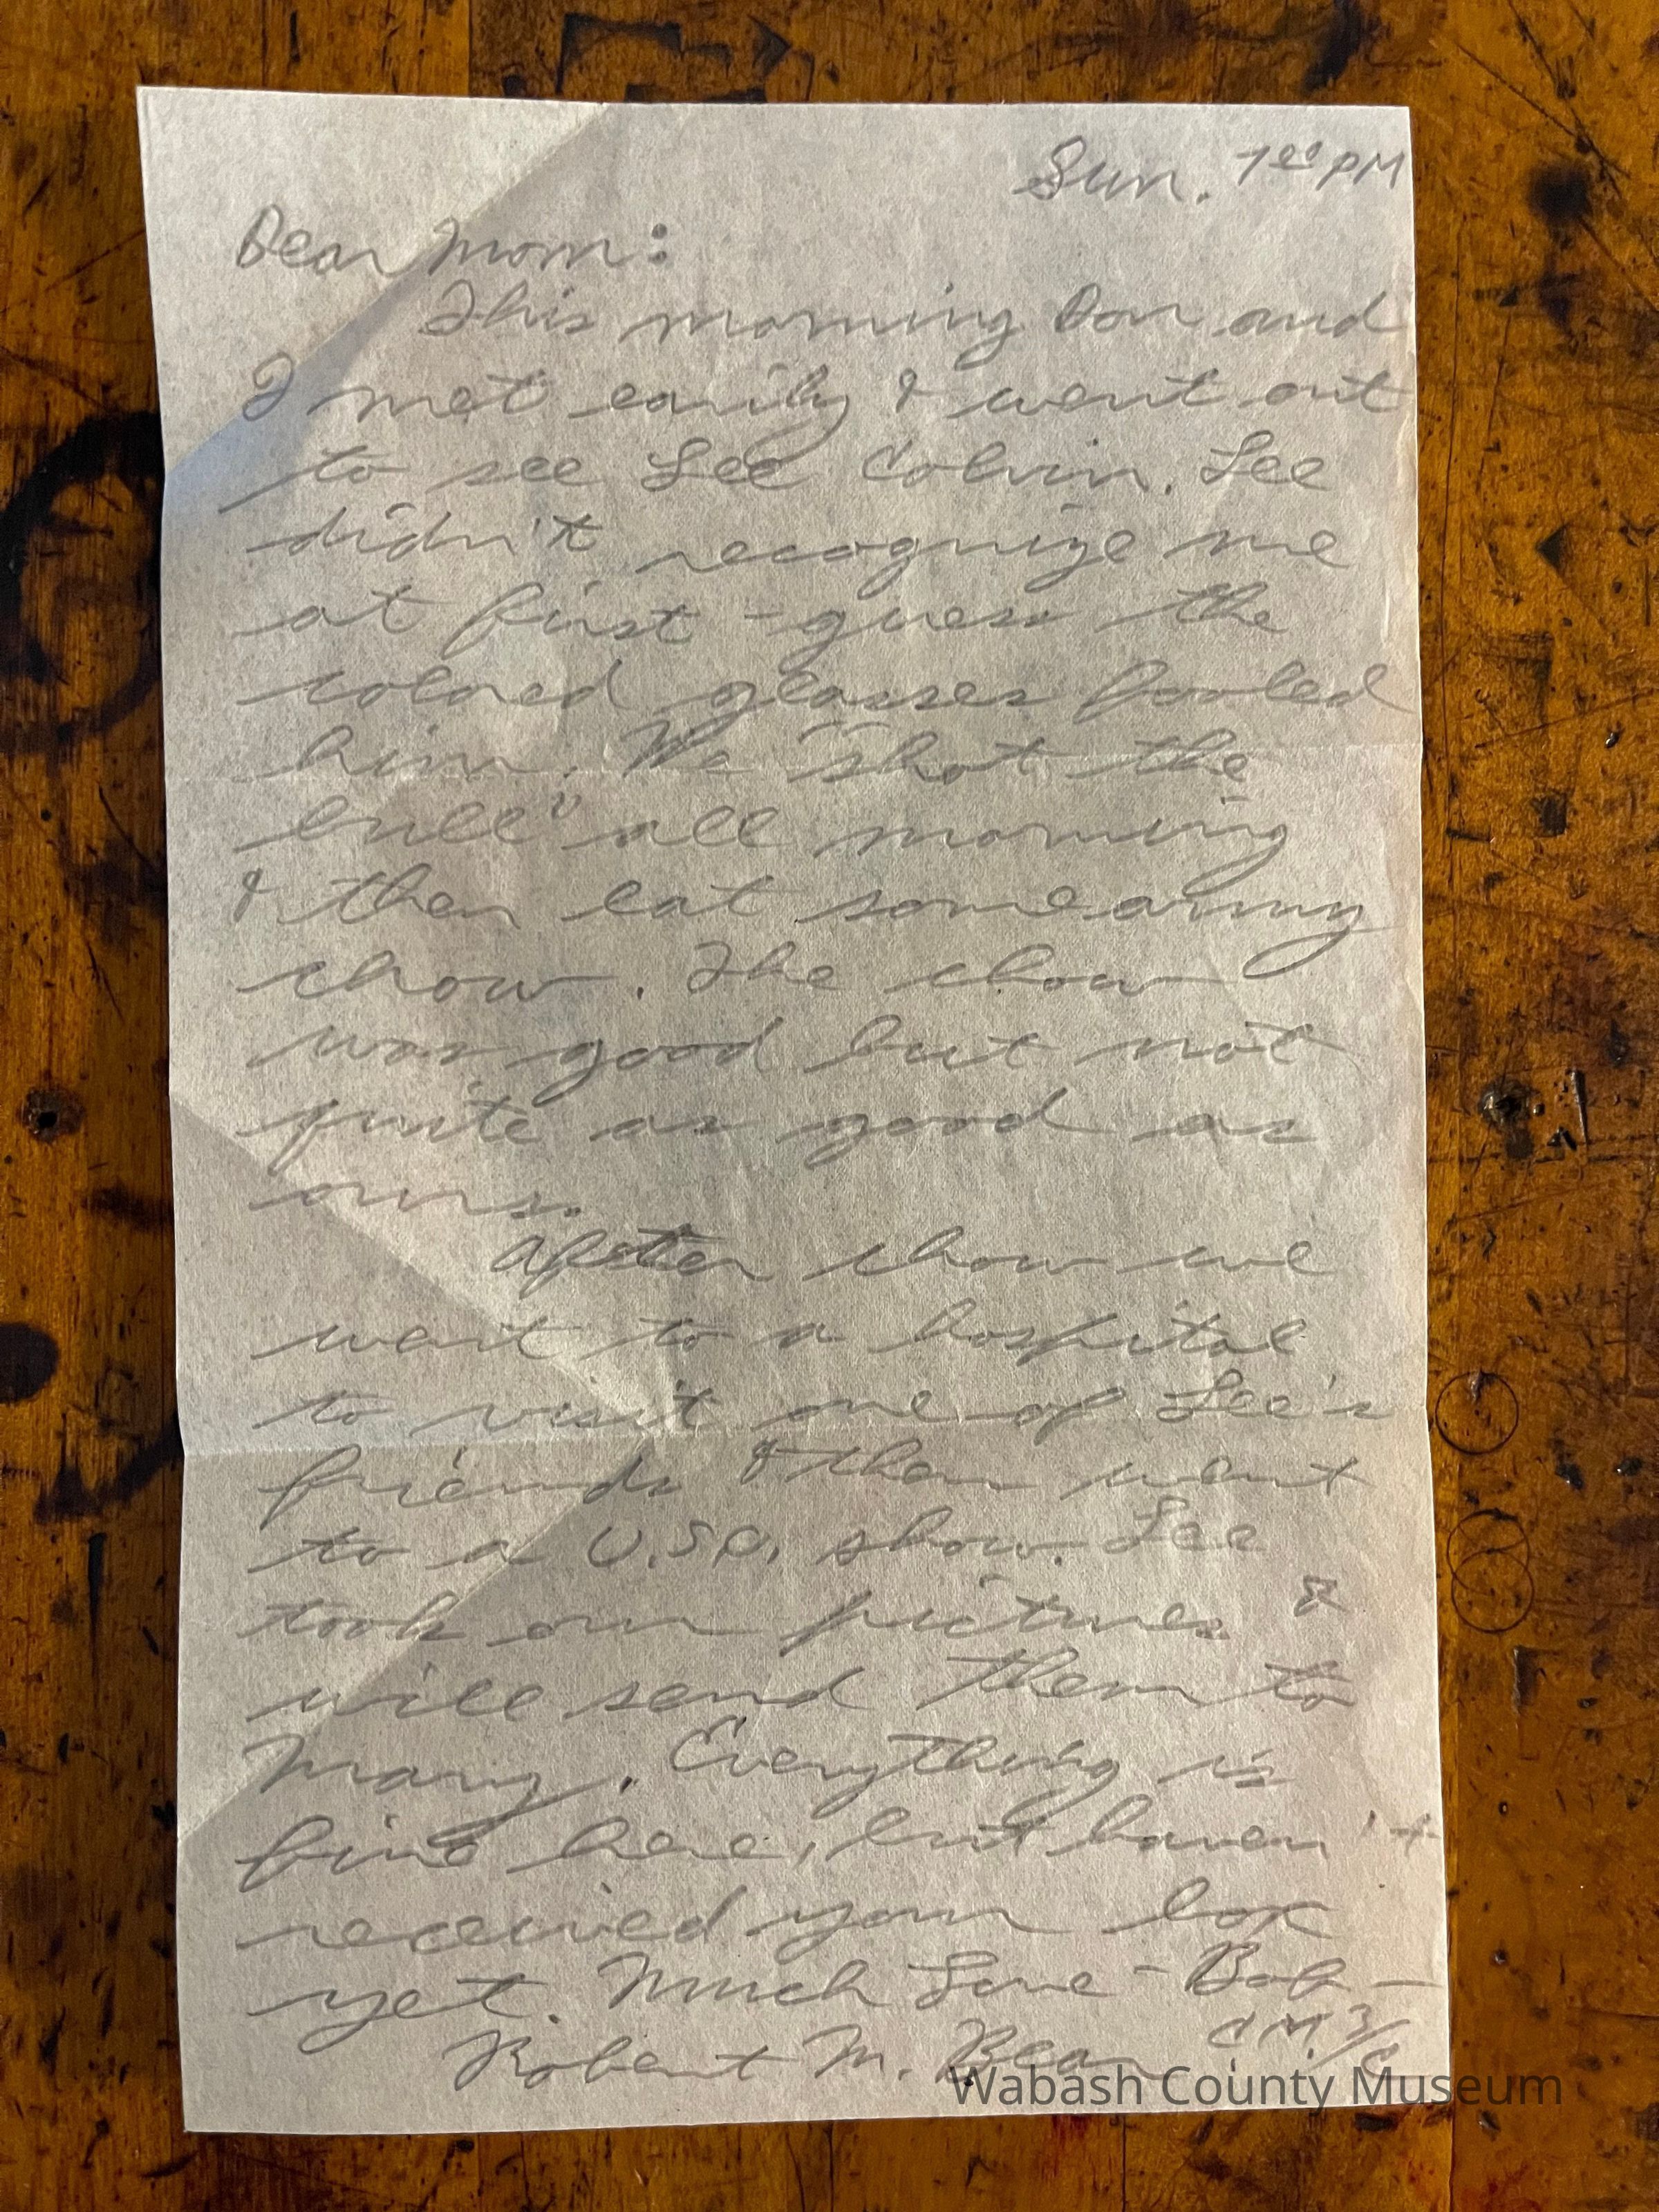 Sun. 7:00 PM
Dear Mom:
This morning Don and
I met early & went out
to see Lee Colvin. Lee
didn't recognize me
at first - guess the
colored glasses fooled
him. We "shot the
bull" all morning
& then eat some army
chow. The chow
was good but not
quite as good as
ours.
After chow we
went to a hospital
to visit one of Lee's
friends & then went
to a U.S.O. show. Lee
took our pictures &
will send them to
Mary. Everything is
fine here, but haven't
received your box
yet. Much Love - Bob -
Robert M. Bear C.M. 3/c
Wabash County Museum